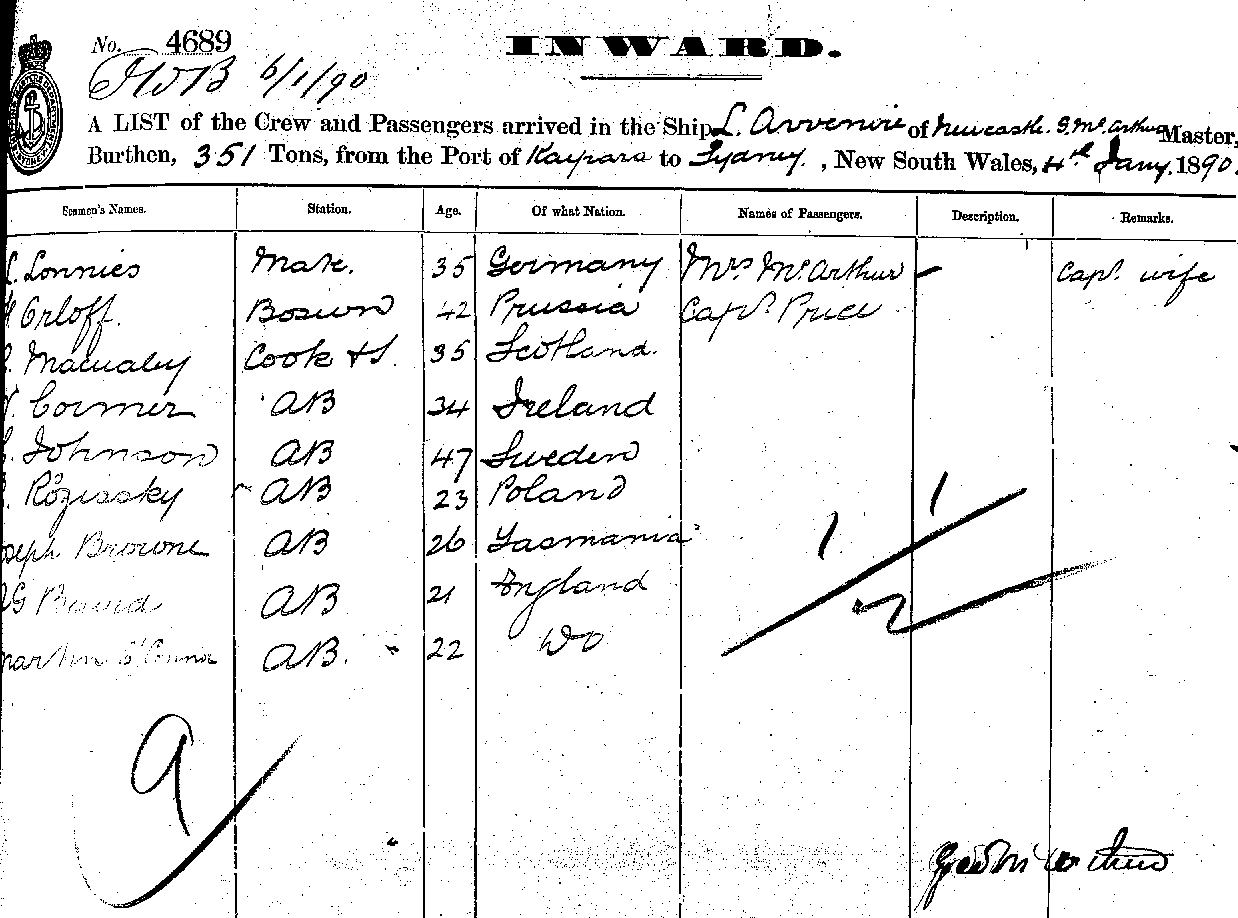 No. 4689
INWARD.
6/1/90
A LIST of the Crew and Passengers arrived in the Ship L. Avvenire of Newcastle. G. Mc. Arthur Master,
Burthen, 351 Tons, from the Port of Kaipara to Sydney, New South Wales, 4th Jany. 1890.
Seamen's Names. Station. Age. Of what Nation. Names of Passengers. Description. Remarks.
Lonnies Mate. 35 Germany Mrs McArthur – Capt. wife
Orloff. Bosun 42 Prussia Capt. Price
Macualey Cook & S. 35 Scotland.
Cormer AB 34 Ireland
Johnson AB 47 Sweden
AB 23 Poland
oseph Browne AB 26 Tasmania
G Baird AB 21 England
Martin O'Connor AB. 22 Do
1 1
2
9